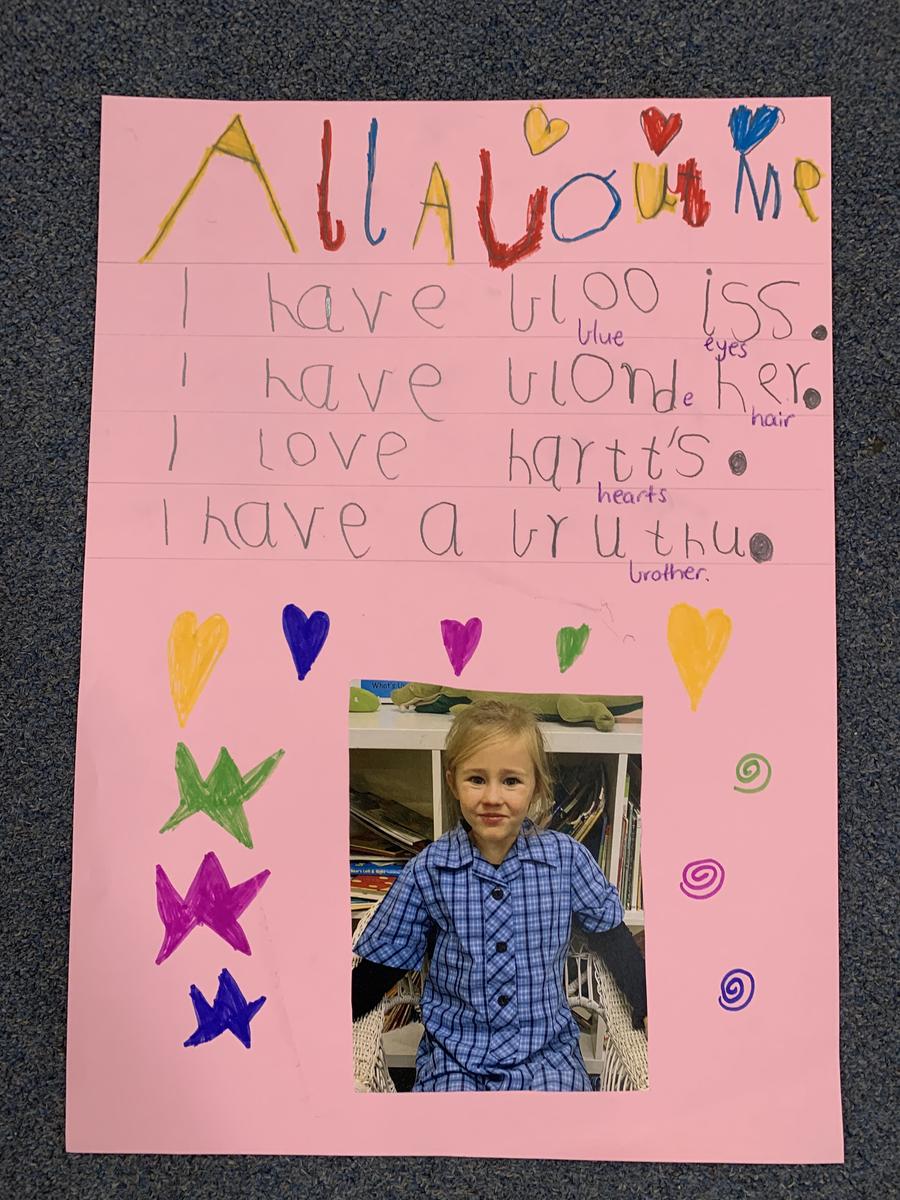 All About Me
I have bloo iss.
blue eyes
I have blond e her.
hair
I love hartt's.
hearts
I have a bruthu.
brother.
What's U
Bear's Left & Right